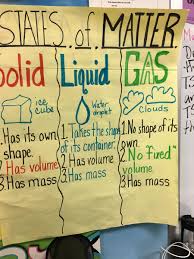 STATES of MATTER
Solid Liquid GAS
ice cube
Water droplet
Clouds
1. Has its own shape.
2 Has volume
3 Has mass
1. Takes the shape of its container.
2. Has volume
3 Has mass
1. No shape of its own.
2. No "fixed" volume.
3 Has mass